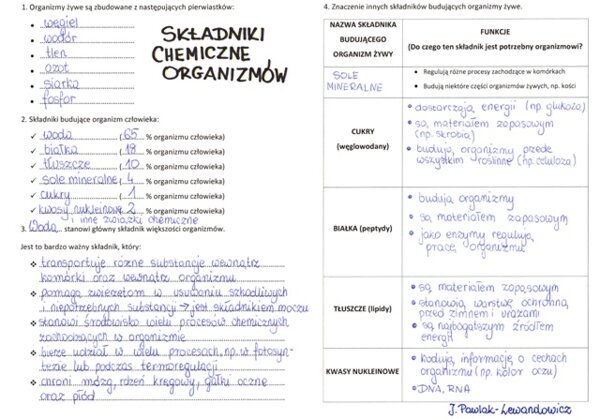 1. Organizmy żywe są zbudowane z następujących pierwiastków:
• węgiel
• wodór
• tlen
• azot
• siarka
• fosfor
SKŁADNIKI
CHEMICZNE
ORGANIZMÓW
2. Składniki budujące organizm człowieka:
✓ woda (65 % organizmu człowieka)
✓ białka (18 % organizmu człowieka)
✓ tłuszcze (10 % organizmu człowieka)
✓ sole mineralne (4 % organizmu człowieka)
✓ cukry (1 % organizmu człowieka)
✓ kwasy nukleinowe (2 % organizmu człowieka)
i inne związki chemiczne
3. Woda stanowi główny składnik większości organizmów.
Jest to bardzo ważny składnik, który:
❖ transportuje różne substancje wewnątrz
komórki oraz wewnątrz organizmu
❖ pomaga zwierzętom w usuwaniu szkodliwych
i niepotrzebnych substancji → jest składnikiem moczu
❖ stanowi środowisko wielu procesów chemicznych
zachodzących w organizmie
❖ bierze udział w wielu procesach, np. w fotosyn-
tezie lub podczas termoregulacji
❖ chroni mózg, rdzeń kręgowy, gałki oczne
oraz płód
4. Znaczenie innych składników budujących organizmy żywe.
NAZWA SKŁADNIKA
BUDUJĄCEGO
ORGANIZM ŻYWY
FUNKCJE
(Do czego ten składnik jest potrzebny organizmowi?)
SOLE
MINERALNE
• Regulują różne procesy zachodzące w komórkach
• Budują niektóre części organizmów żywych, np. kości
CUKRY
(węglowodany)
• dostarczają energii (np. glukoza)
• są materiałem zapasowym
(np. skrobia)
• budują organizmy przede
wszystkim roślinne (np. celuloza)
BIAŁKA (peptydy)
• budują organizmy
• są materiałem zapasowym
• jako enzymy regulują
pracę organizmu
TŁUSZCZE (lipidy)
• są materiałem zapasowym
• stanowią warstwę ochronną
przed zimnem i urazami
• są najbogatszym źródłem
energii
KWASY NUKLEINOWE
• kodują informację o cechach
organizmu (np. kolor oczu)
• DNA, RNA
J. Pawlak-Lewandowicz